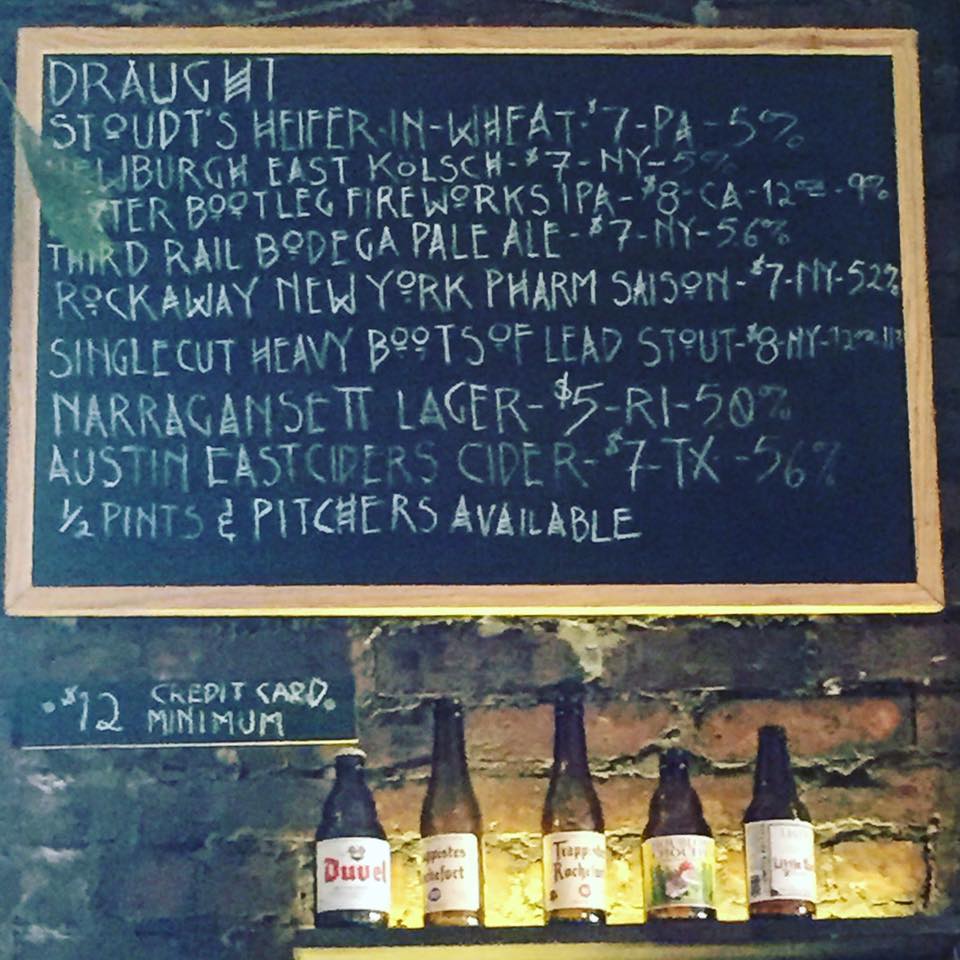 DRAUGHT
STOUDT'S HEIFER-IN-WHEAT-$7-PA-5%
NEWBURGH EAST KOLSCH-$7-NY-5%
BOOTLEG FIREWORKS IPA-$8-CA-12oz-9%
THIRD RAIL BODEGA PALE ALE-$7-NY-5.6%
ROCKAWAY NEW YORK PHARM SAISON-$7-NY-5.2%
SINGLECUT HEAVY BOOTS OF LEAD STOUT-$8-NY-12oz
NARRAGANSETT LAGER-$5-RI-5.0%
AUSTIN EASTCIDERS CIDER-$7-TX-5.6%
1/2 PINTS & PITCHERS AVAILABLE
$12 CREDIT CARD
MINIMUM
Duvel
Rochefort
Trappistes
Rochefort
Little